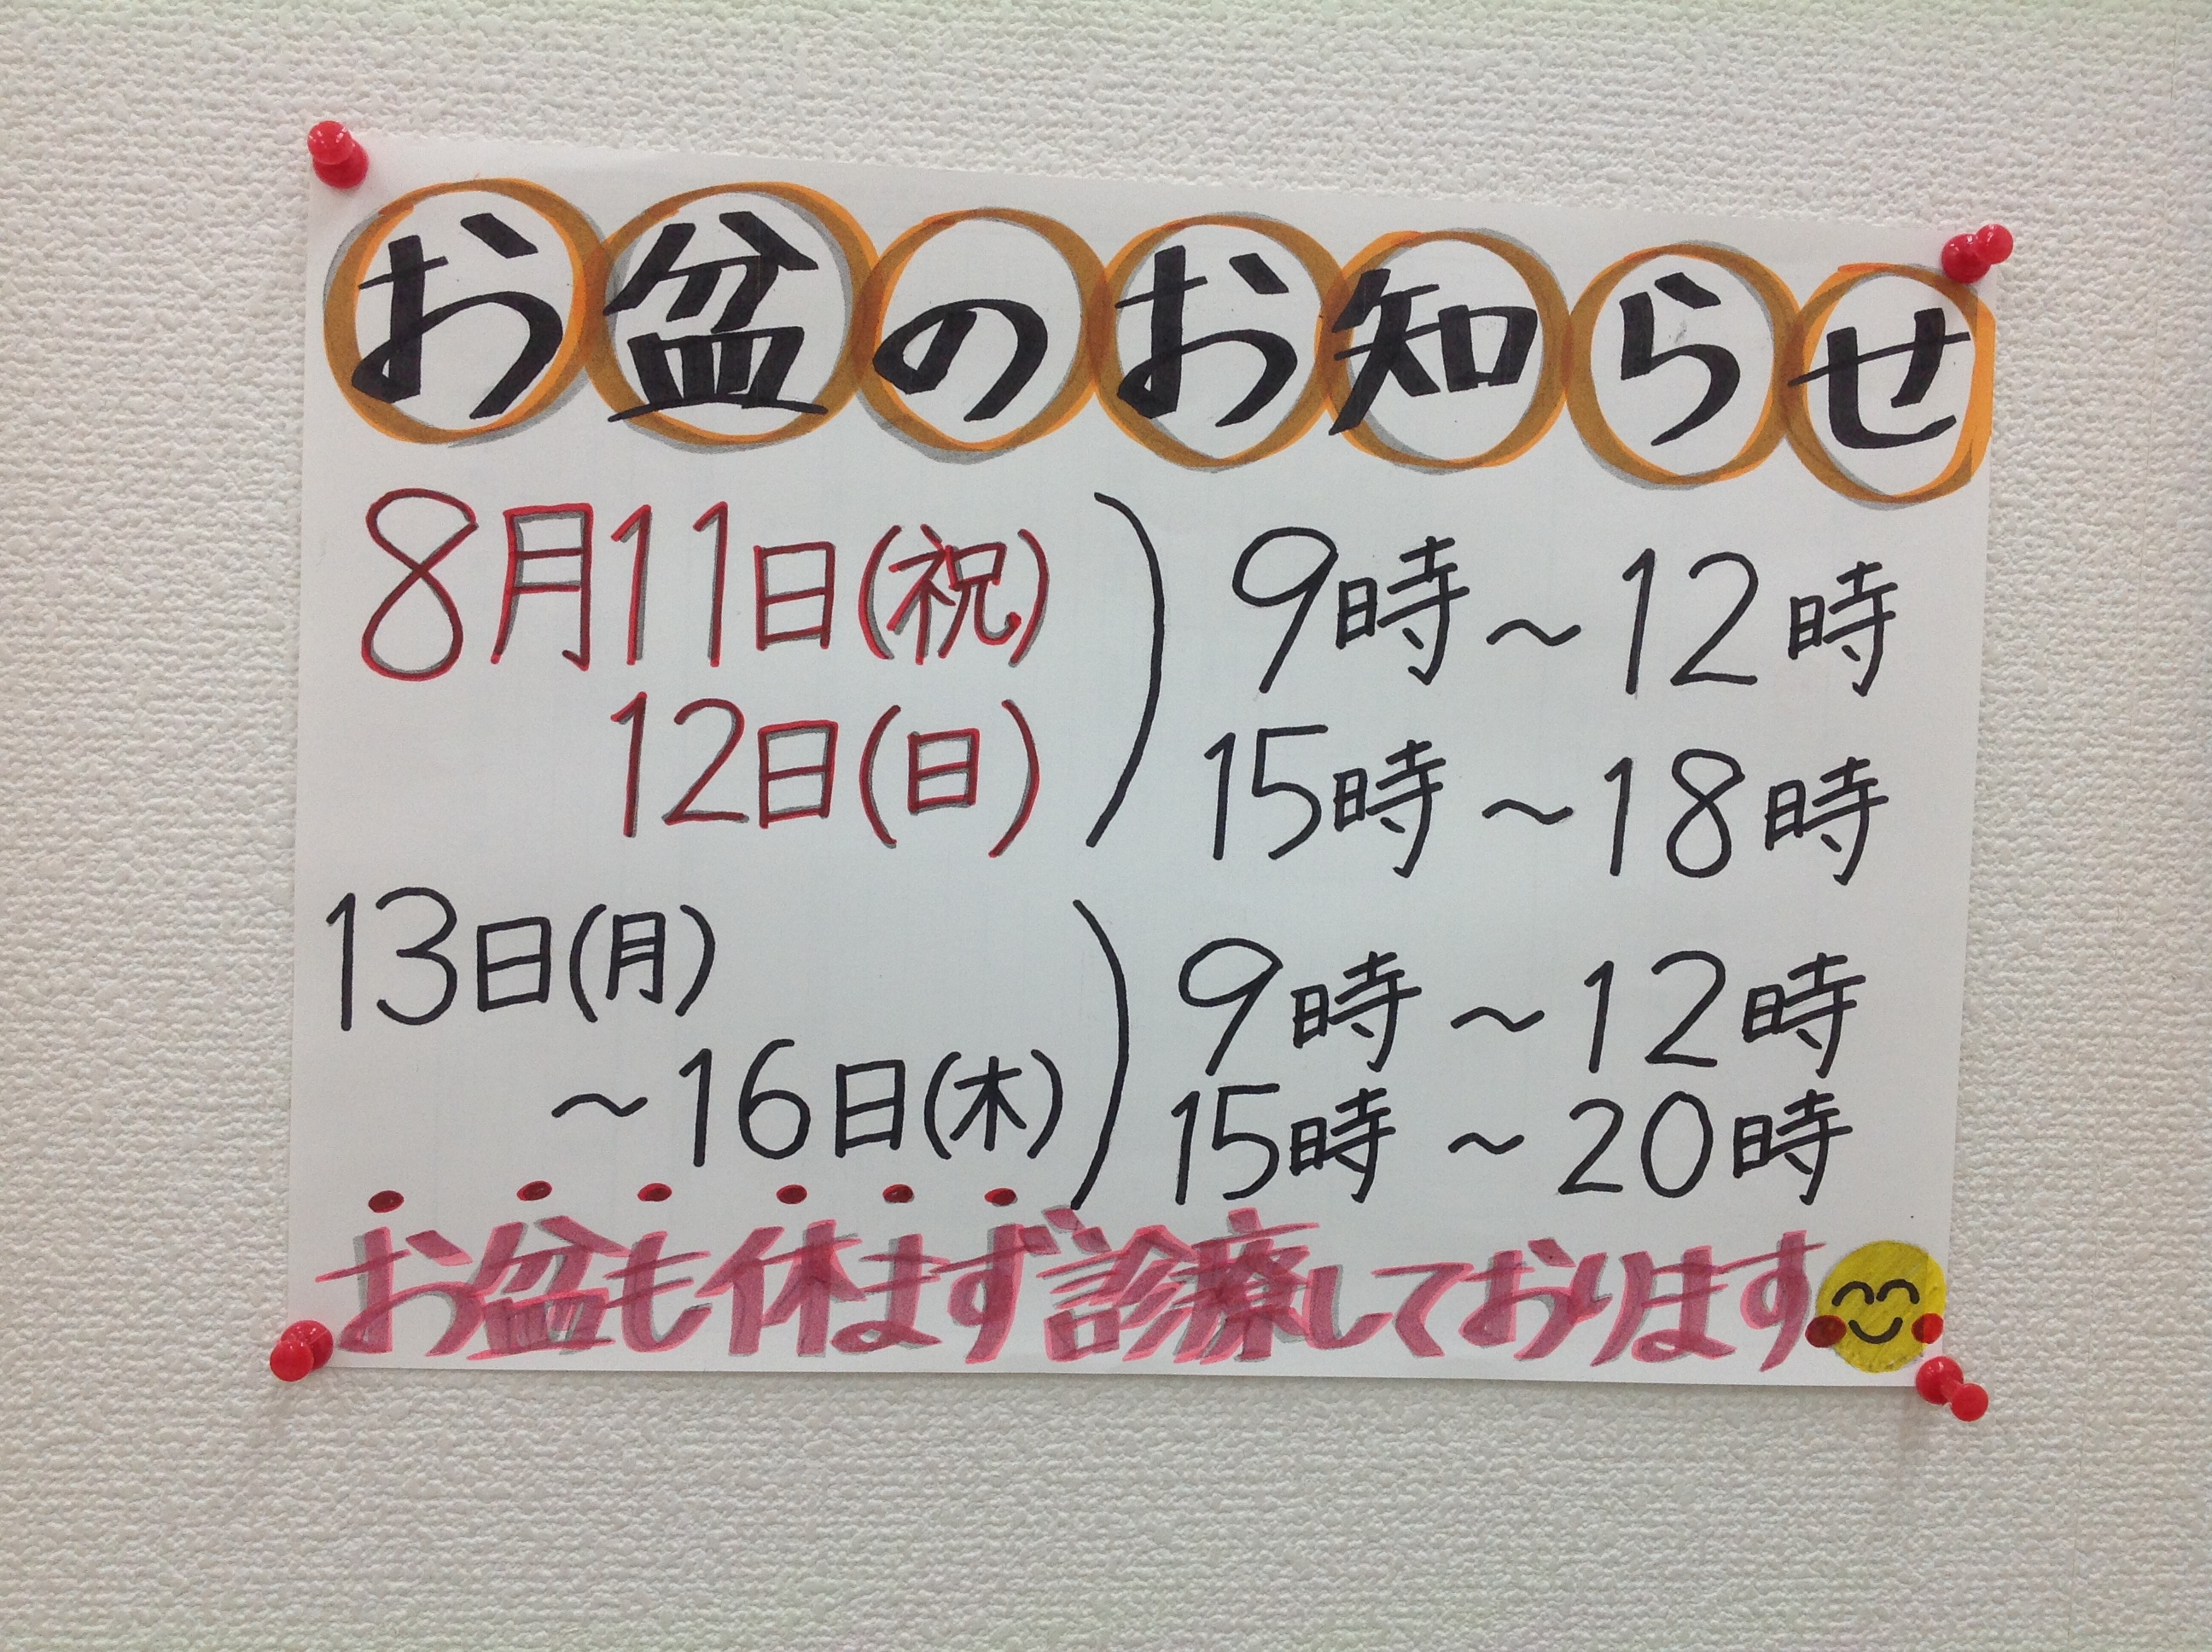 お盆のお知らせ
8月11日(祝)
12日(日)
9時～12時
15時～18時
13日(月)
～16日(木)
9時～12時
15時～20時
お盆も休まず診療しております